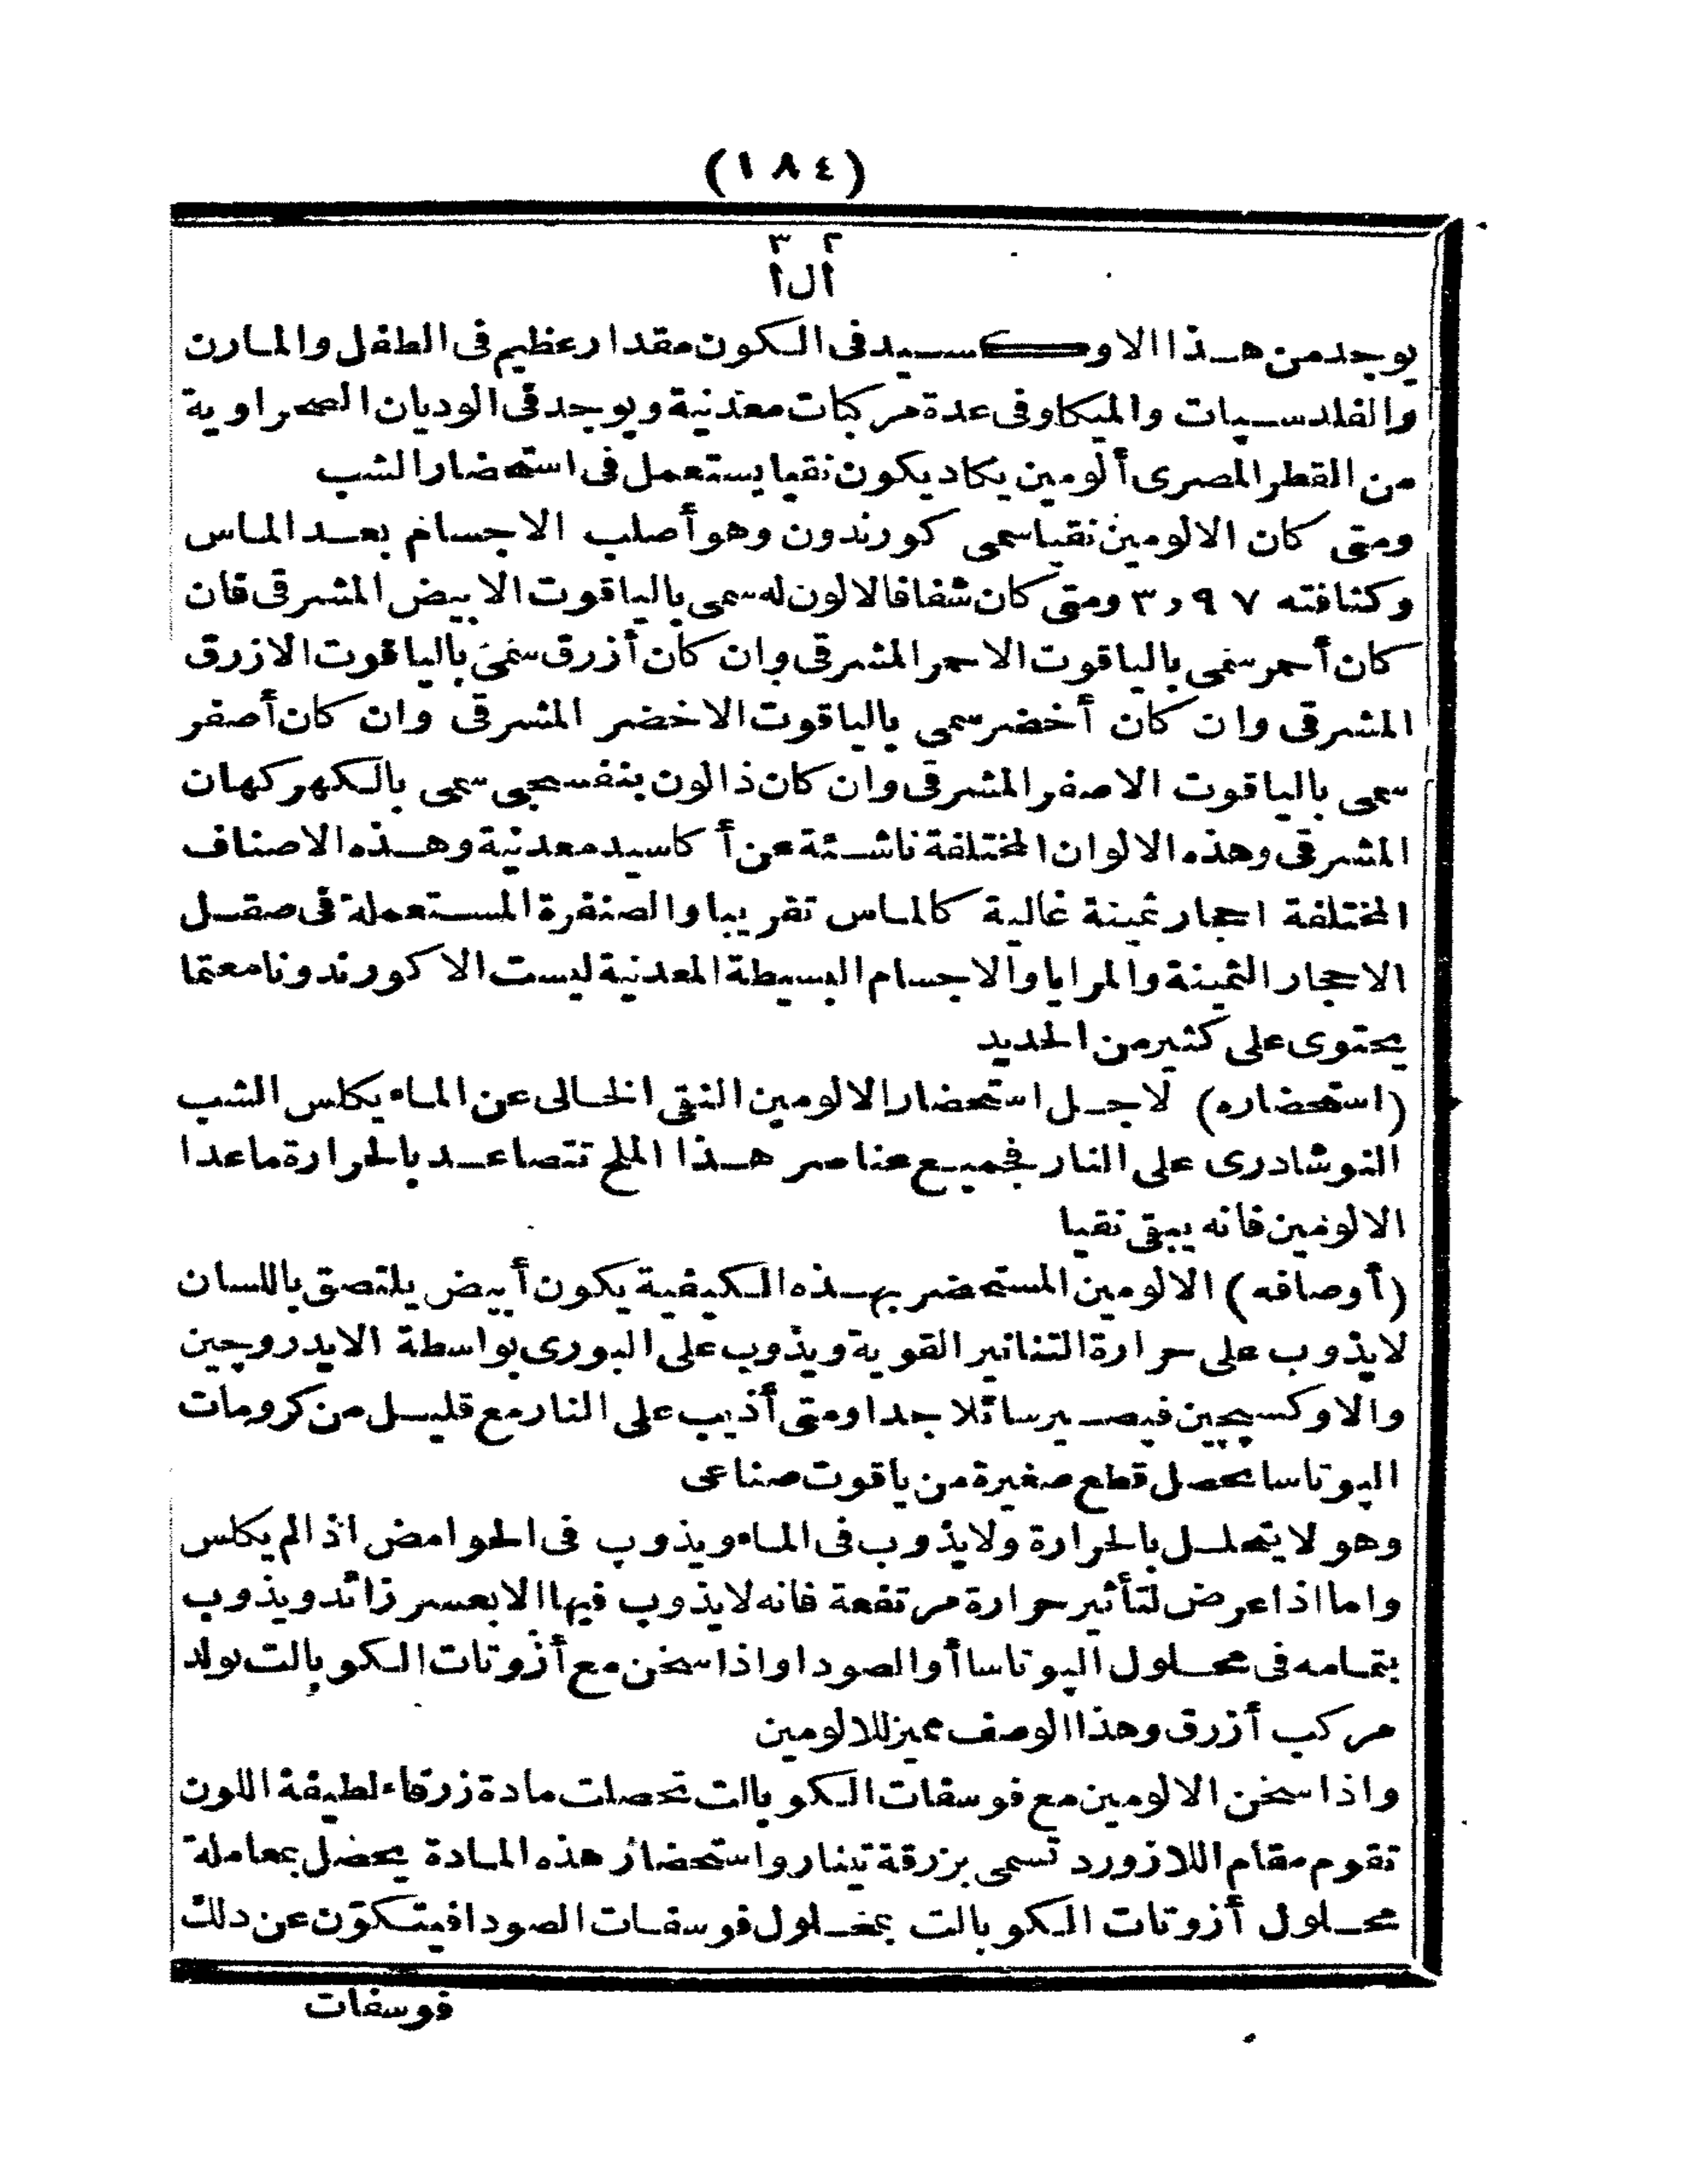 (١٨٤)
٢ ٣
ال ا
يوجد من هذا الاوكسيد فى الكون مقدار عظيم فى الطفل والمارن
والفلدسبات والميكا وفى عدة مركبات معدنية ويوجد فى الوديان الصحراوية
من القطر المصرى ألومين يكاد يكون نقيا يستعمل فى استحضار الشب
ومتى كان الالومين نقيا سمى كورندون وهو أصلب الاجسام بعد الماس
وكثافته ٩٧ر٣ ومتى كان شفافا لا لون له سمى بالياقوت الابيض المشرقى فان
كان أحمر سمى بالياقوت الاحمر المشرقى وان كان أزرق سمى بالياقوت الازرق
المشرقى وان كان أخضر سمى بالياقوت الاخضر المشرقى وان كان أصفر
سمى بالياقوت الاصفر المشرقى وان كان ذا لون بنفسجى سمى بالكهركهان
المشرقى وهذه الالوان المختلفة ناشئة عن أكاسيد معدنية وهذه الاصناف
المختلفة احجار ثمينة غالية كالماس تقريبا والصنفرة المستعملة فى صقل
الاحجار الثمينة والمرايا والاجسام البسيطة المعدنية ليست الا كورندونا معتما
يحتوى على كثير من الحديد
(استحضاره) لاجل استحضار الالومين النقى الخالى عن الماء يكلس الشب
النوشادرى على النار فجميع عناصر هذا الملح تتصاعد بالحرارة ماعدا
الالومين فانه يبقى نقيا
(أوصافه) الالومين المستحضر بهذه الكيفية يكون أبيض يلتصق باللسان
لا يذوب على حرارة التنانير القوية ويذوب على البورى بواسطة الايدروچين
والاوكسيچين فيصير سائلا جدا ومتى أذيب على النار مع قليل من كرومات
الپوتاسا تحصل قطع صغيرة من ياقوت صناعى
وهو لا يتحلل بالحرارة ولا يذوب فى الماء ويذوب فى الحوامض اذا لم يكلس
واما اذا عرض لتأثير حرارة مرتفعة فانه لا يذوب فيها الا بعسر زائد ويذوب
بتمامه فى محلول الپوتاسا أو الصودا واذا سخن مع أزوتات الكوبالت تولد
مركب أزرق وهذا الوصف مميز للالومين
واذا سخن الالومين مع فوسفات الكوبالت تحصلت مادة زرقاء لطيفة اللون
تقوم مقام اللازورد تسمى بزرقة تينار واستحضار هذه المادة يحصل بمعاملة
محلول أزوتات الكوبالت بمحلول فوسفات الصودا فيتكوّن عن ذلك
فوسفات